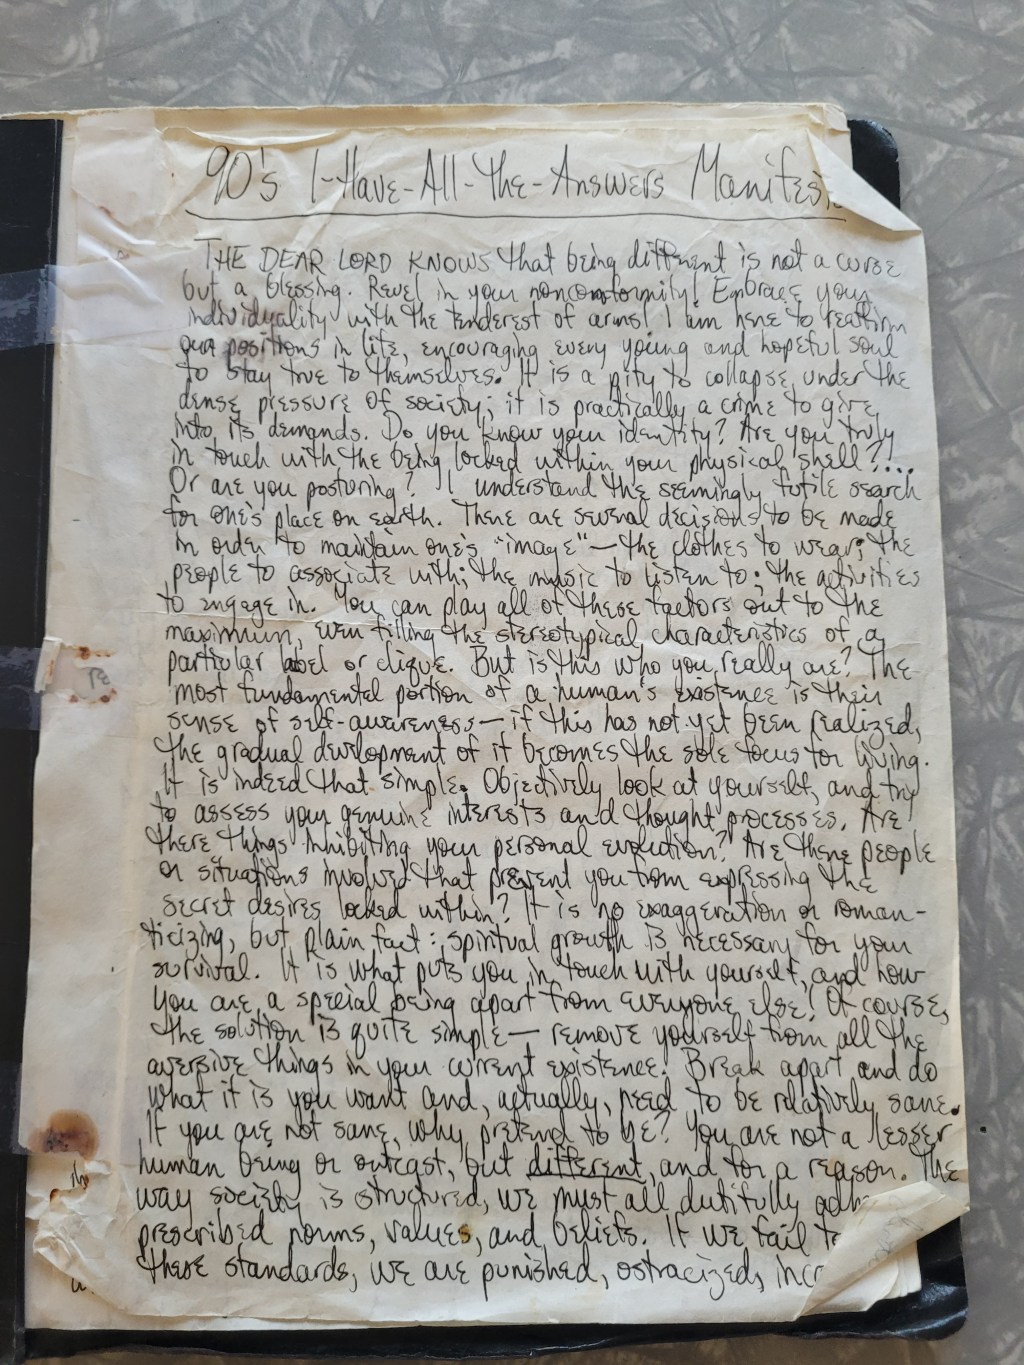 90's I-Have-All-The-Answers Manifes
THE DEAR LORD KNOWS that being different is not a curse
but a blessing. Revel in your nonconformity! Embrace your
individuality with the tenderest of arms! I am here to reaffirm
our positions in life, encouraging every young and hopeful soul
to stay true to themselves. It is a pity to collapse under the
dense pressure of society; it is practically a crime to give
into its demands. Do you know your identity? Are you truly
in touch with the being locked within your physical shell?!...
Or are you posturing? I understand the seemingly futile search
for one's place on earth. There are several decisions to be made
in order to maintain one's "image" — the clothes to wear; the
people to associate with; the music to listen to; the activities
to engage in. You can play all of these factors out to the
maximum, even filling the stereotypical characteristics of a
particular label or clique. But is this who you really are? The
most fundamental portion of a human's existence is their
sense of self-awareness — if this has not yet been realized,
the gradual development of it becomes the sole focus for living.
It is indeed that simple. Objectively look at yourself, and try
to assess your genuine interests and thought processes. Are
there things inhibiting your personal evolution? Are there people
or situations involved that prevent you from expressing the
secret desires locked within? It is no exaggeration or roman-
ticizing, but plain fact: spiritual growth is necessary for your
survival. It is what puts you in touch with yourself, and how
you are a special being apart from everyone else! Of course,
the solution is quite simple — remove yourself from all the
aversive things in your current existence. Break apart and do
what it is you want and, actually, need to be relatively sane.
If you are not sane, why pretend to be? You are not a lesser
human being or outcast, but different, and for a reason. The
way society is structured, we must all dutifully adh
prescribed norms, values, and beliefs. If we fail to
these standards, we are punished, ostracized, incr